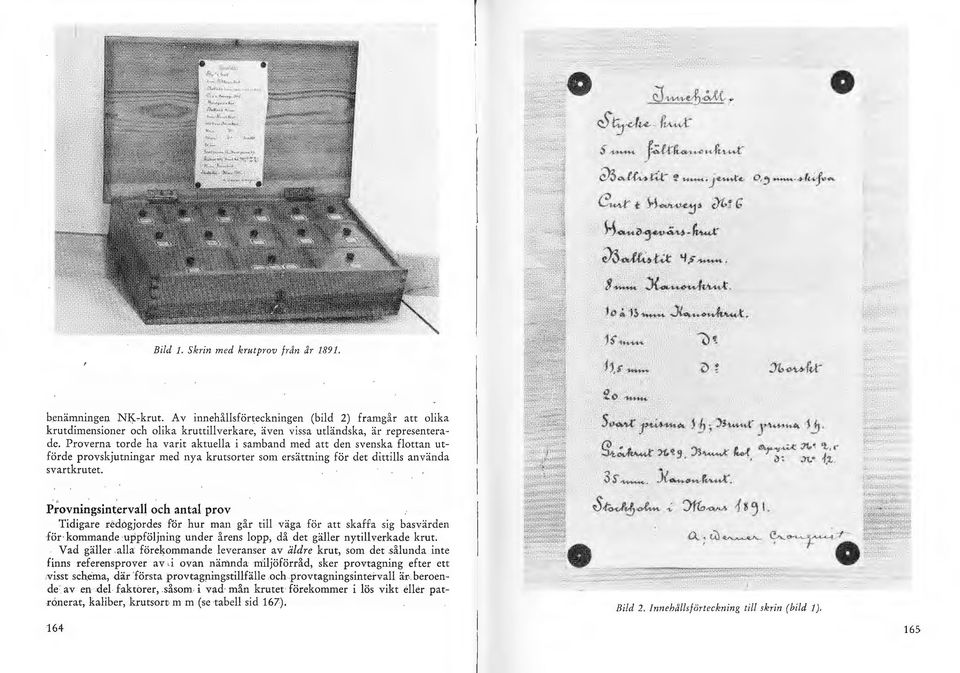 Bild 1. Skrin med krutprov från år 1891.
benämningen NK-krut. Av innehållsförteckningen (bild 2) framgår att olika
krutdimensioner och olika kruttillverkare, även vissa utländska, är representera-
de. Proverna torde ha varit aktuella i samband med att den svenska flottan ut-
förde provskjutningar med nya krutsorter som ersättning för det dittills använda
svartkrutet.
Provningsintervall och antal prov
Tidigare redogjordes för hur man går till väga för att skaffa sig basvärden
för kommande uppföljning under årens lopp, då det gäller nytillverkade krut.
Vad gäller alla förekommande leveranser av äldre krut, som det sålunda inte
finns referensprover av i ovan nämnda miljöförråd, sker provtagning efter ett
visst schema, där första provtagningstillfälle och provtagningsintervall är beroen-
de av en del faktorer, såsom i vad mån krutet förekommer i lös vikt eller pat-
ronerat, kaliber, krutsort m m (se tabell sid 167).
164
Innehåll.
Stycke-krut
5 mm fältkanonkrut
Ballistit 2 mm. jemte 0,9 mm skifva
Curt & Harveys No 6
Handgevärs-krut
Ballistit 4,5 mm.
8 mm Kanonkrut.
10 à 13 mm Kanonkrut.
15 mm Do
11,5 mm Do Norskt
20 mm
Svart prisma 1 h; Brunt prisma 1 h.
Gråkrut No 9. Brunt kol
35 mm. Kanonkrut.
Stockholm i Mars 1891.
A. Werner Cronquist
Bild 2. Innehållsförteckning till skrin (bild 1).
165